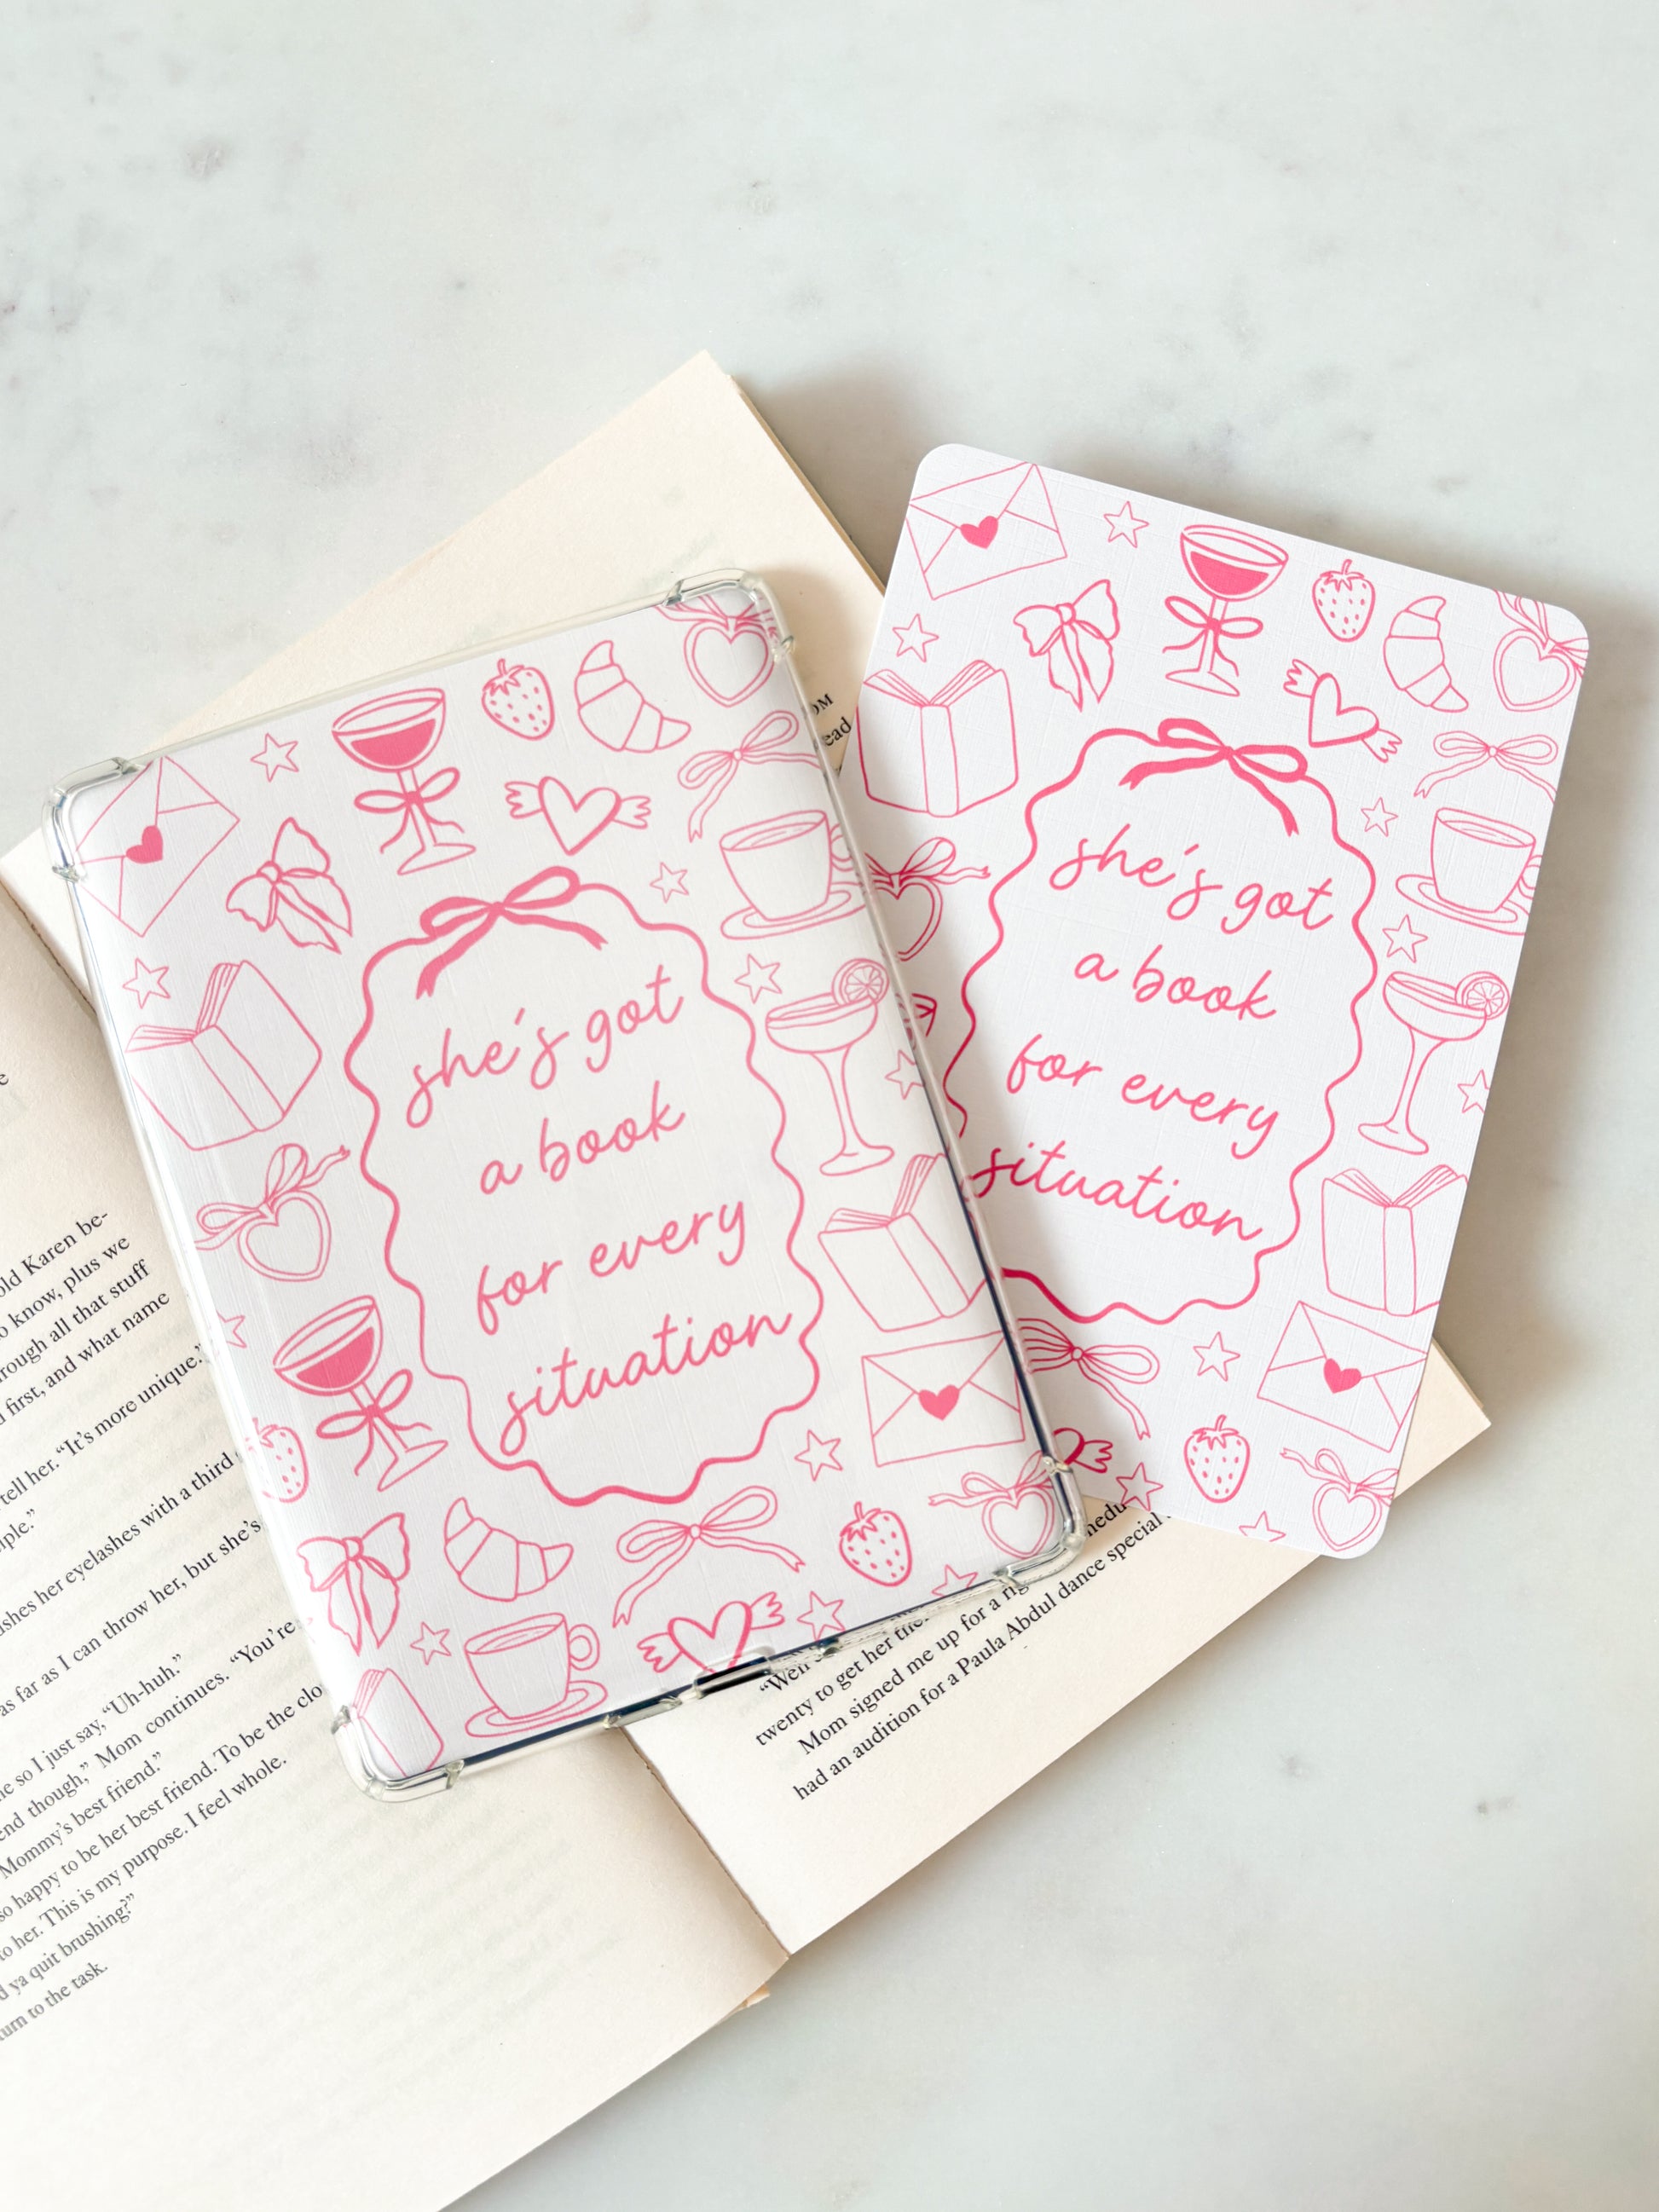 she's got
a book
for every
situation
she's got
a book
for every
situation
old Karen be-
know, plus we
rough all that stuff
first, and what name
tell her. “It's more unique.”
ple.”
shes her eyelashes with a third
as far as I can throw her, but she's
so I just say, “Uh-huh.”
end though,” Mom continues. “You're
Mommy's best friend.”
so happy to be her best friend. To be the clo
to her. This is my purpose. I feel whole.
ya quit brushing?”
turn to the task.
OM
ead
“Well
twenty to get her
Mom signed me up for a
had an audition for a Paula Abdul dance special